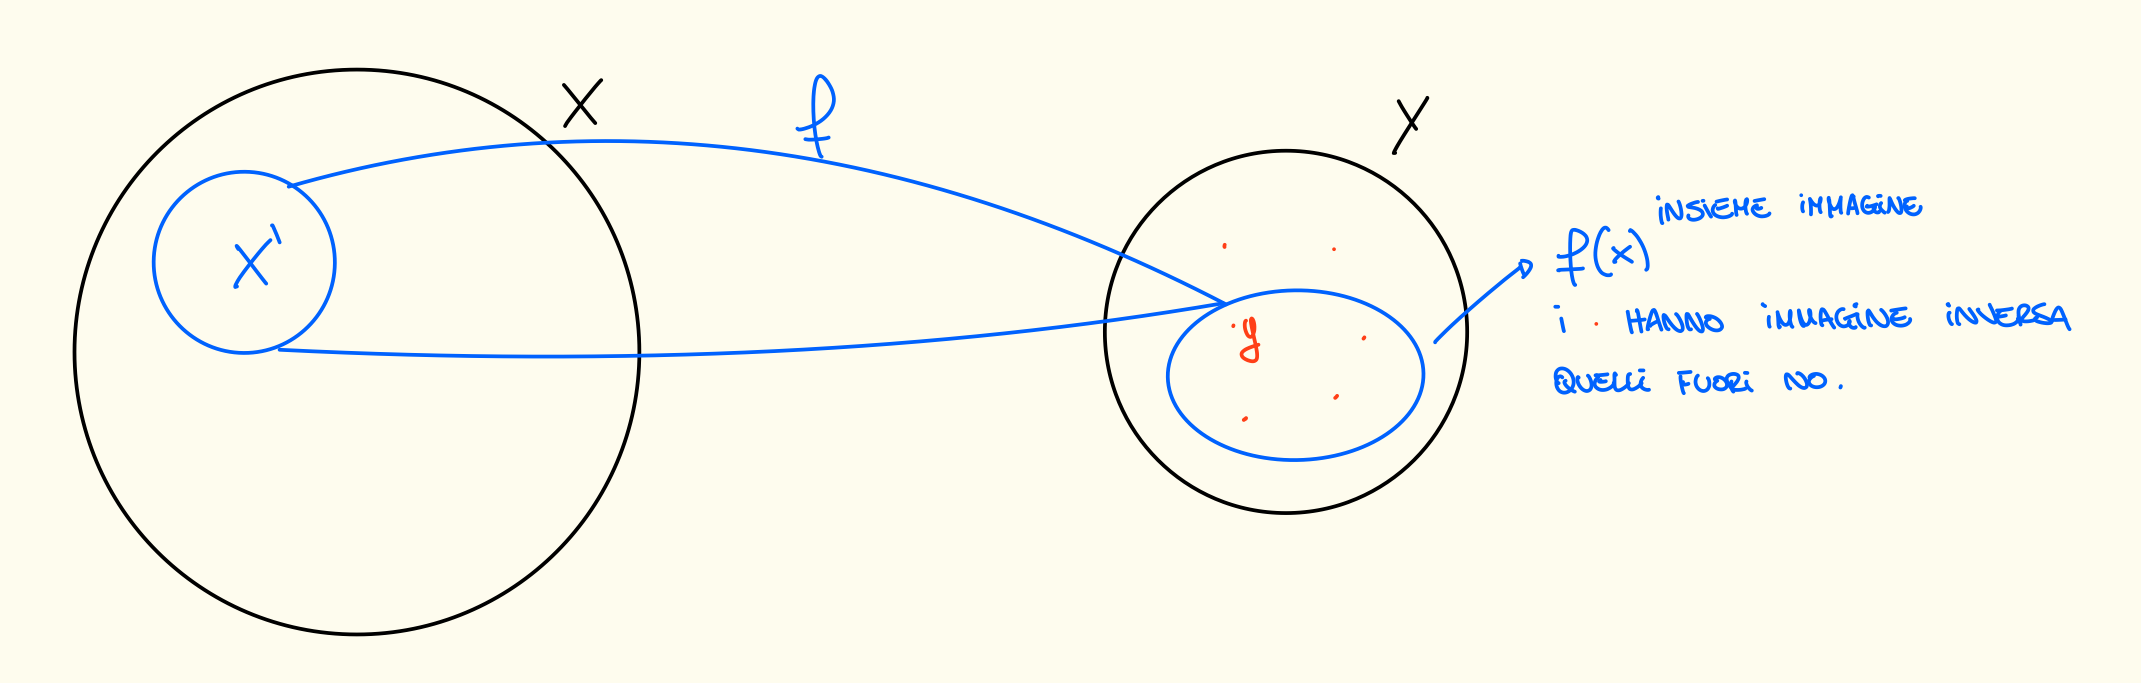 X
f
Y
X'
y
INSIEME IMMAGINE
f(x)
i · HANNO IMMAGINE INVERSA
QUELLI FUORI NO.